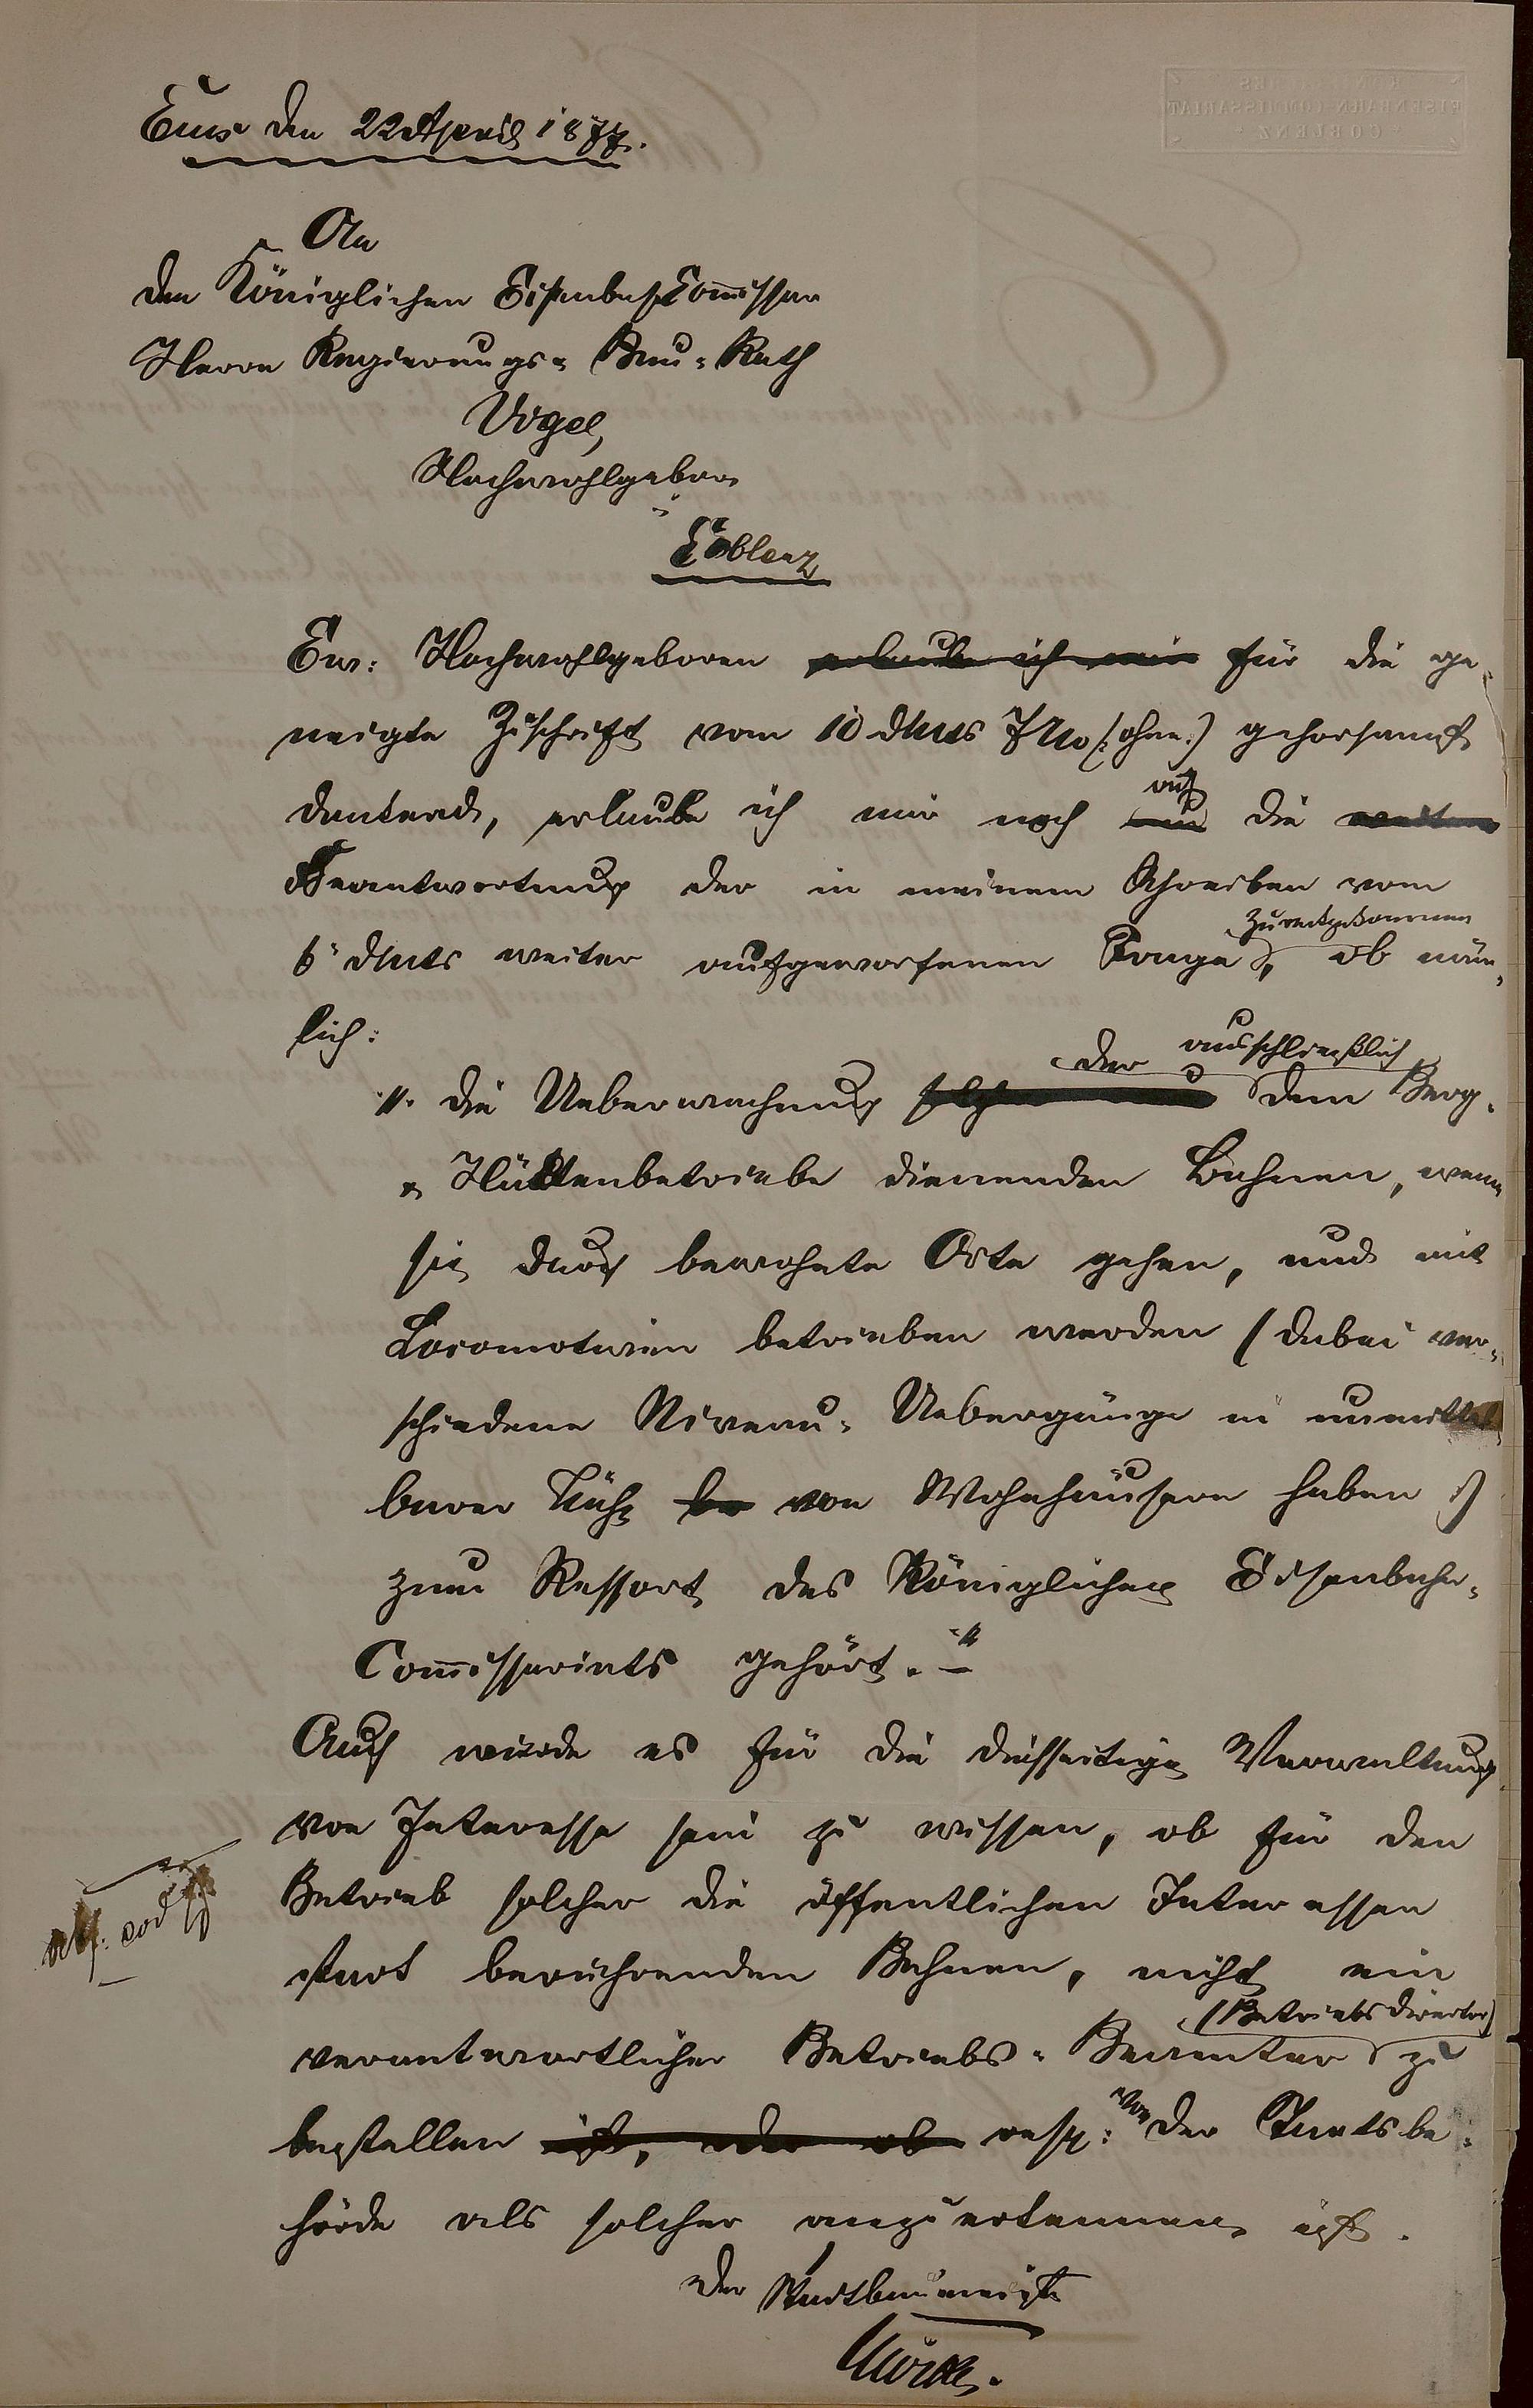 Ems den 22 April 1877.
An
den Königlichen Eisenbahn Commissar
Herrn Regierungs- Bau- Rath
Vogel,
Hochwohlgeboren
Coblenz
Ew: Hochwohlgeboren erlaube ich mir für die ge-
neigte Zuschrift vom 10 dMts JNo (: ohne :) gehorsamst
dankend, erlaube ich mir noch auf die weitere
Beantwortung der in meinem Schreiben vom
6 dMts weiter aufgeworfenen Frage, zurückzukommen ob näm-
lich:
"die Ueberwachung der ausschließlich dem Berg-
- Hüttenbetriebe dienenden Bahnen, wenn
sie durch bewohnte Orte gehen, und mit
Locomotiven betrieben werden (dabei ver-
schiedene Niveau- Uebergänge in unmittel
barer Nähe von Wohnhäusern haben :)
zum Ressort des Königlichen Eisenbahn-
Commissariats gehört."
Auch würde es für die diesseitige Verwaltung
von Interesse sein zu wissen, ob für den
Betrieb solcher die öffentlichen Interessen
stark berührenden Bahnen, nicht ein
verantwortlicher Betriebs- Beamter (Betriebsdirector) zu
bestellen ist, oder ob resp: von der Staatsbe-
hörde als solcher anzuerkennen ist.
Der Stadtbaumeister